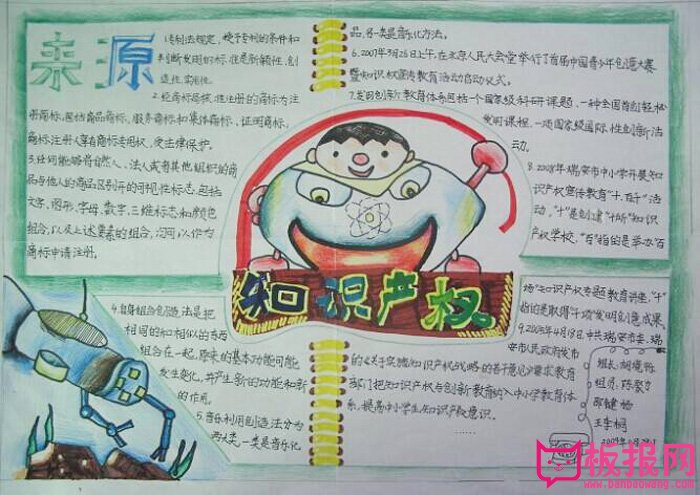 来源
1.专利法规定,授予专利的条件和
判断发明的标准是新颖性,创
造性,实用性。
2.经商标局核准注册的商标为注
册商标,包括商品商标,服务商标和集体商标,证明商标,
商标注册人享有商标专用权,受法律保护。
3.任何能够将自然人、法人或者其他组织的商
品与他人的商品区别开的可视性标志,包括
文字,图形,字母,数字,三维标志和颜色
组合,以及上述要素的组合,均可以作为
商标申请注册。
知识产权
4.自身组合创造法是把
相同的和相似的东西
组合在一起,原来的基本功能可能
发生变化,并产生新的功能和新
的作用。
5.音乐利用创造法分为
两大类,一类是音乐化
品,另一类是音乐化方法。
6.2007年3月26日上午,在北京人民大会堂举行了首届中国青少年创造大赛
暨知识权宣传教育活动启动仪式。
发明课程,一项国家级国际性创新活
动。
8.2008年瑞安市中小学开展知
识产权宣传教育“十,百,千”活
动,“十”是创建“十所”知识
产权学校,“百”指的是举办百
场“知识产权专题教育讲座,“千”
指的是取得“千项”发明创造成果。
9.2005年4月18日中共瑞安市委、瑞
安市人民政府发布
的《关于实施知识产权战略的若干意见》要求教育
部门把知识产权与创新教育纳入中小学教育体
系,提高中小学生知识产权意识。
组长:
组员:
板报网
www.banbaowang.com